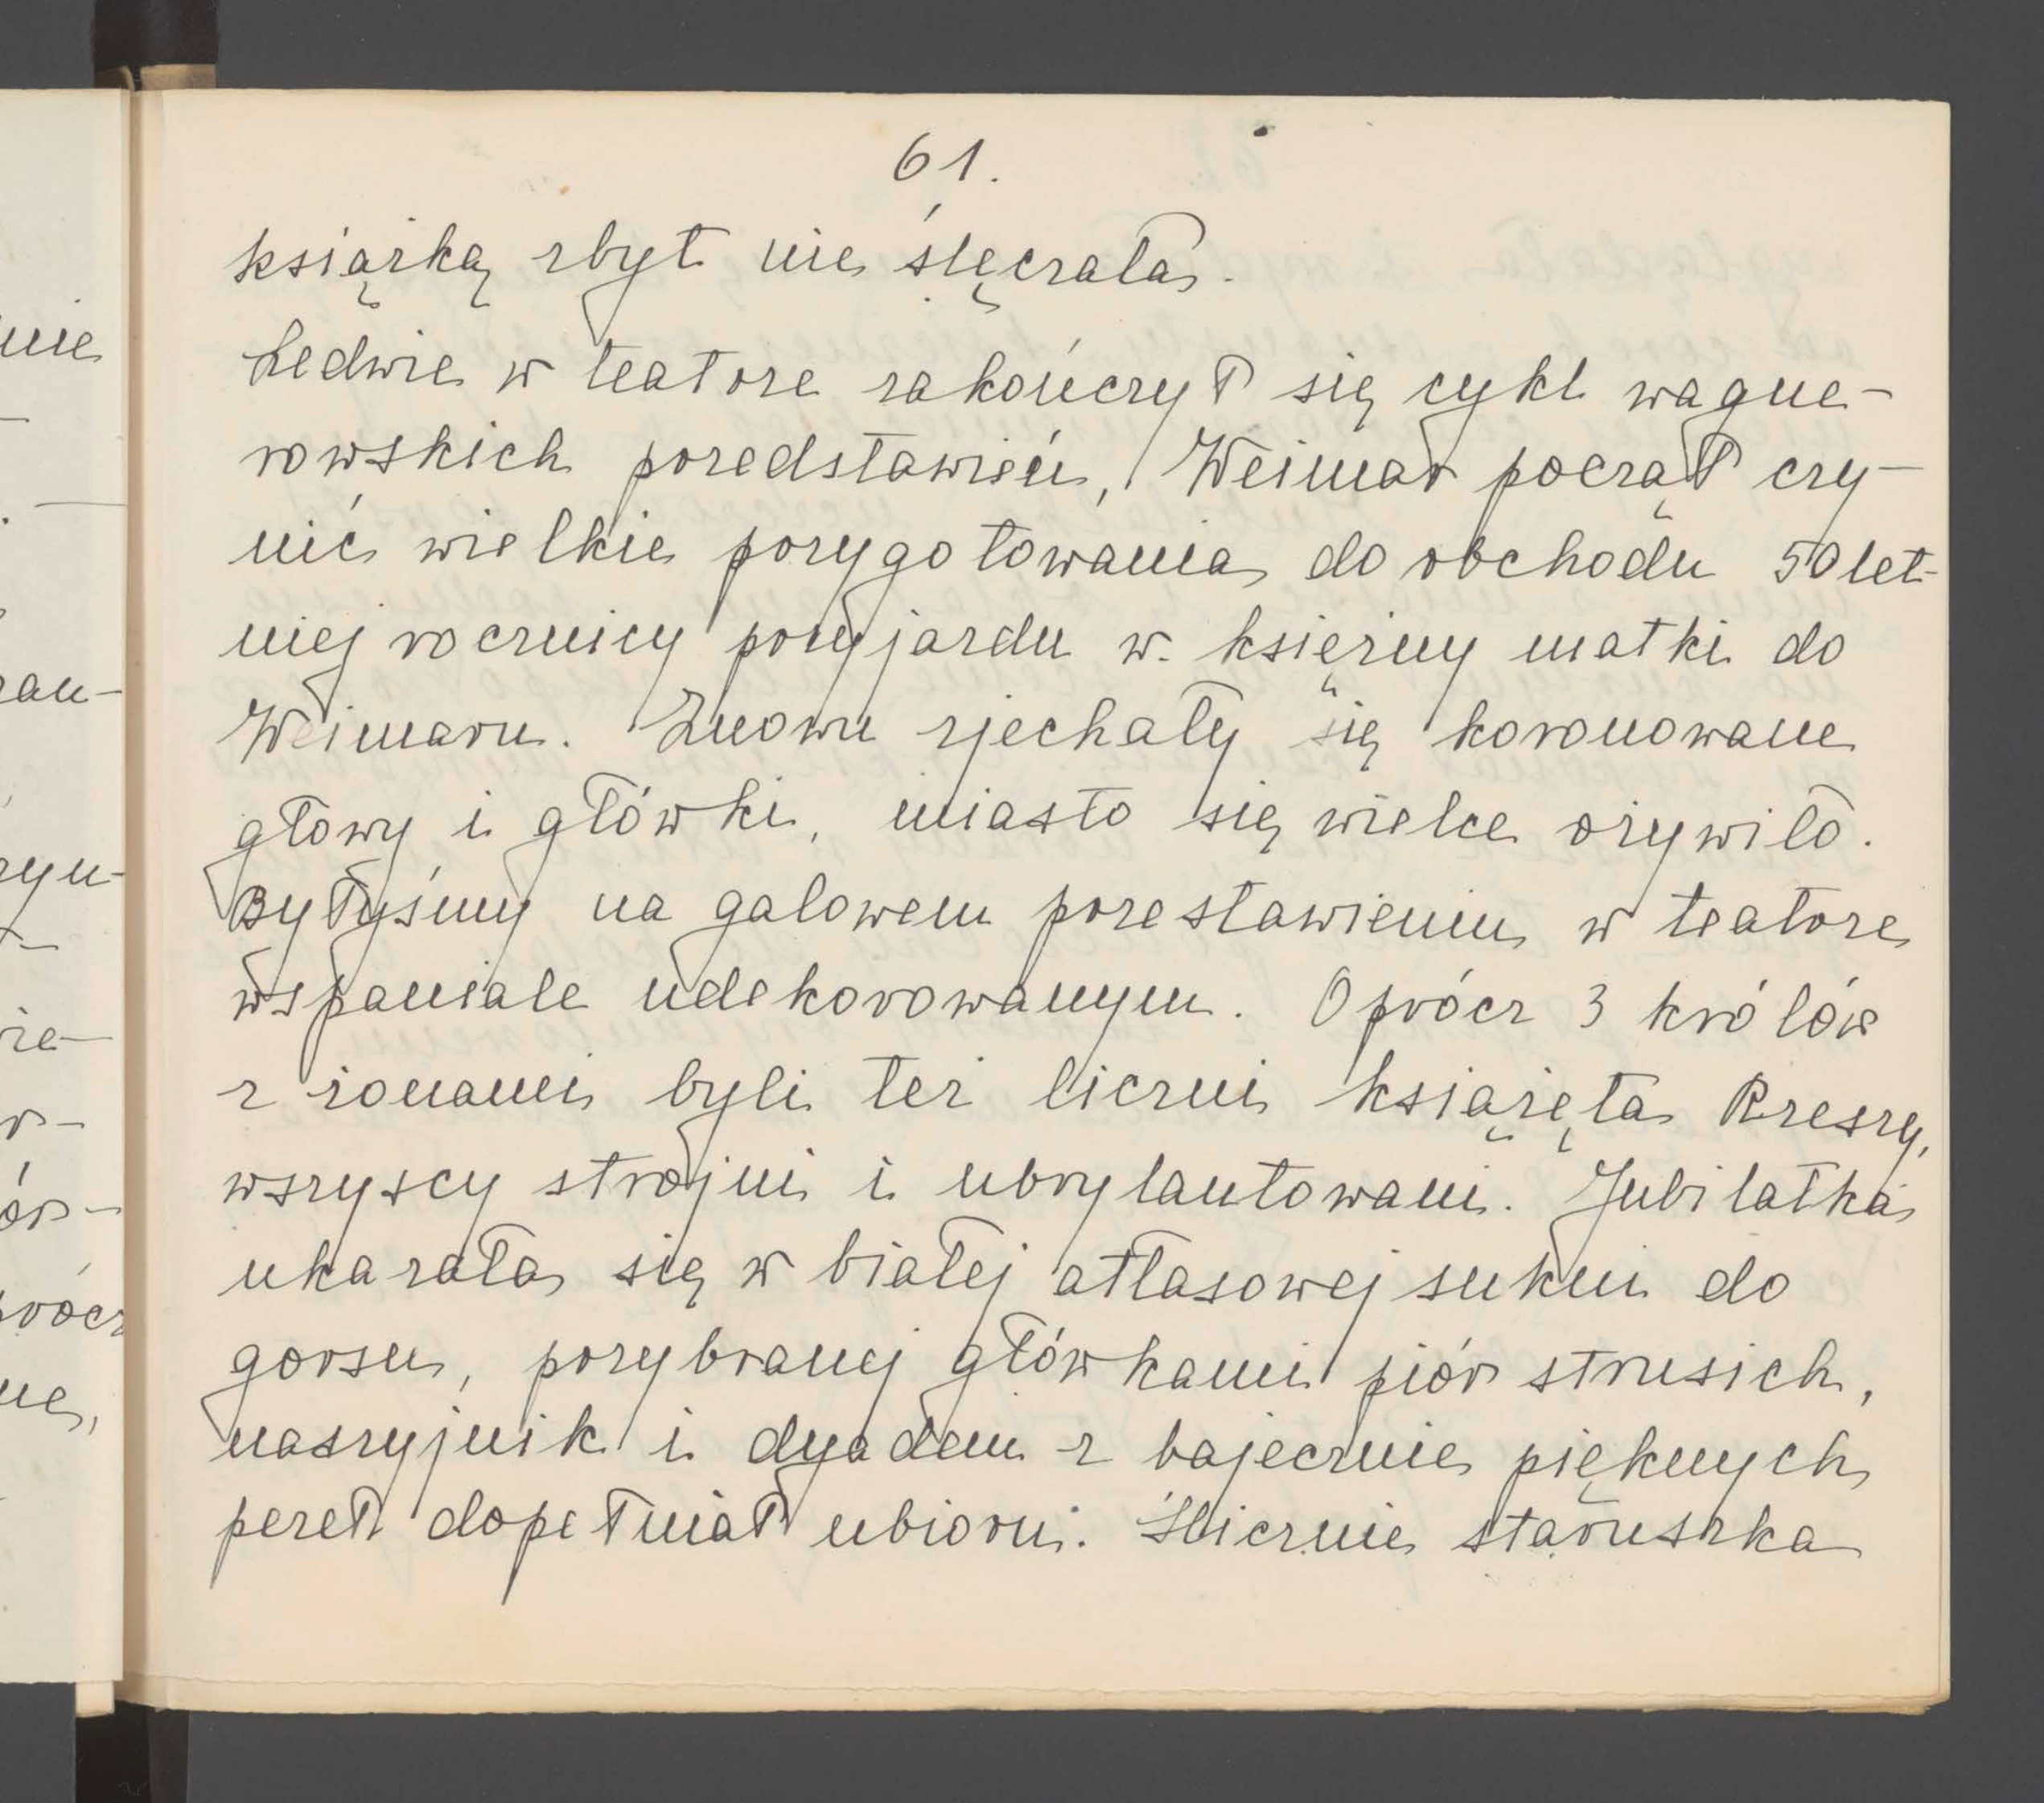 61.
książką zbyt nie ślęczała.
Ledwie w teatrze zakończył się cykl wagne-
rowskich przedstawień, Weimar począł czy-
nić wielkie przygotowania do obchodu 50 let-
niej rocznicy przyjazdu w. księżny matki do
Weimaru. Znowu zjechały się koronowane
głowy i główki, miasto się wielce ożywiło.
Byłyśmy na galowem przestawieniu w teatrze
wspaniale udekorowanym. Oprócz 3 królów
z żonami byli też liczni książęta Rzeszy,
wszyscy strojni i ubrylantowani. Jubilatka
ukazała się w białej atłasowej sukni do
gorsu, przybranej główkami piór strusich,
naszyjnik i dyadem z bajecznie pięknych
pereł dopełniał ubioru. Ślicznie staruszka